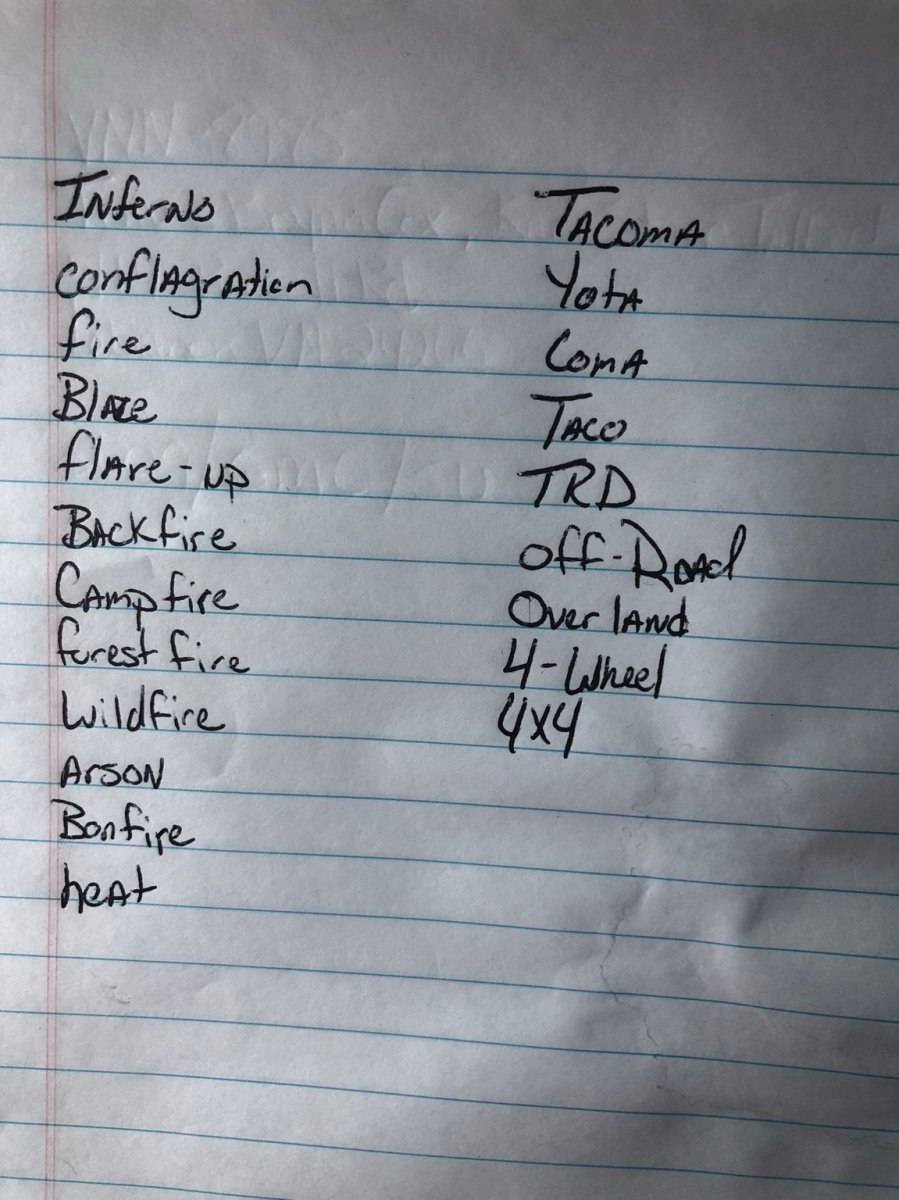 Inferno
conflagration
fire
Blaze
flare-up
Backfire
Campfire
forest fire
Wildfire
Arson
Bonfire
heat
Tacoma
Yota
Coma
Taco
TRD
Off-Road
Overland
4-Wheel
4x4